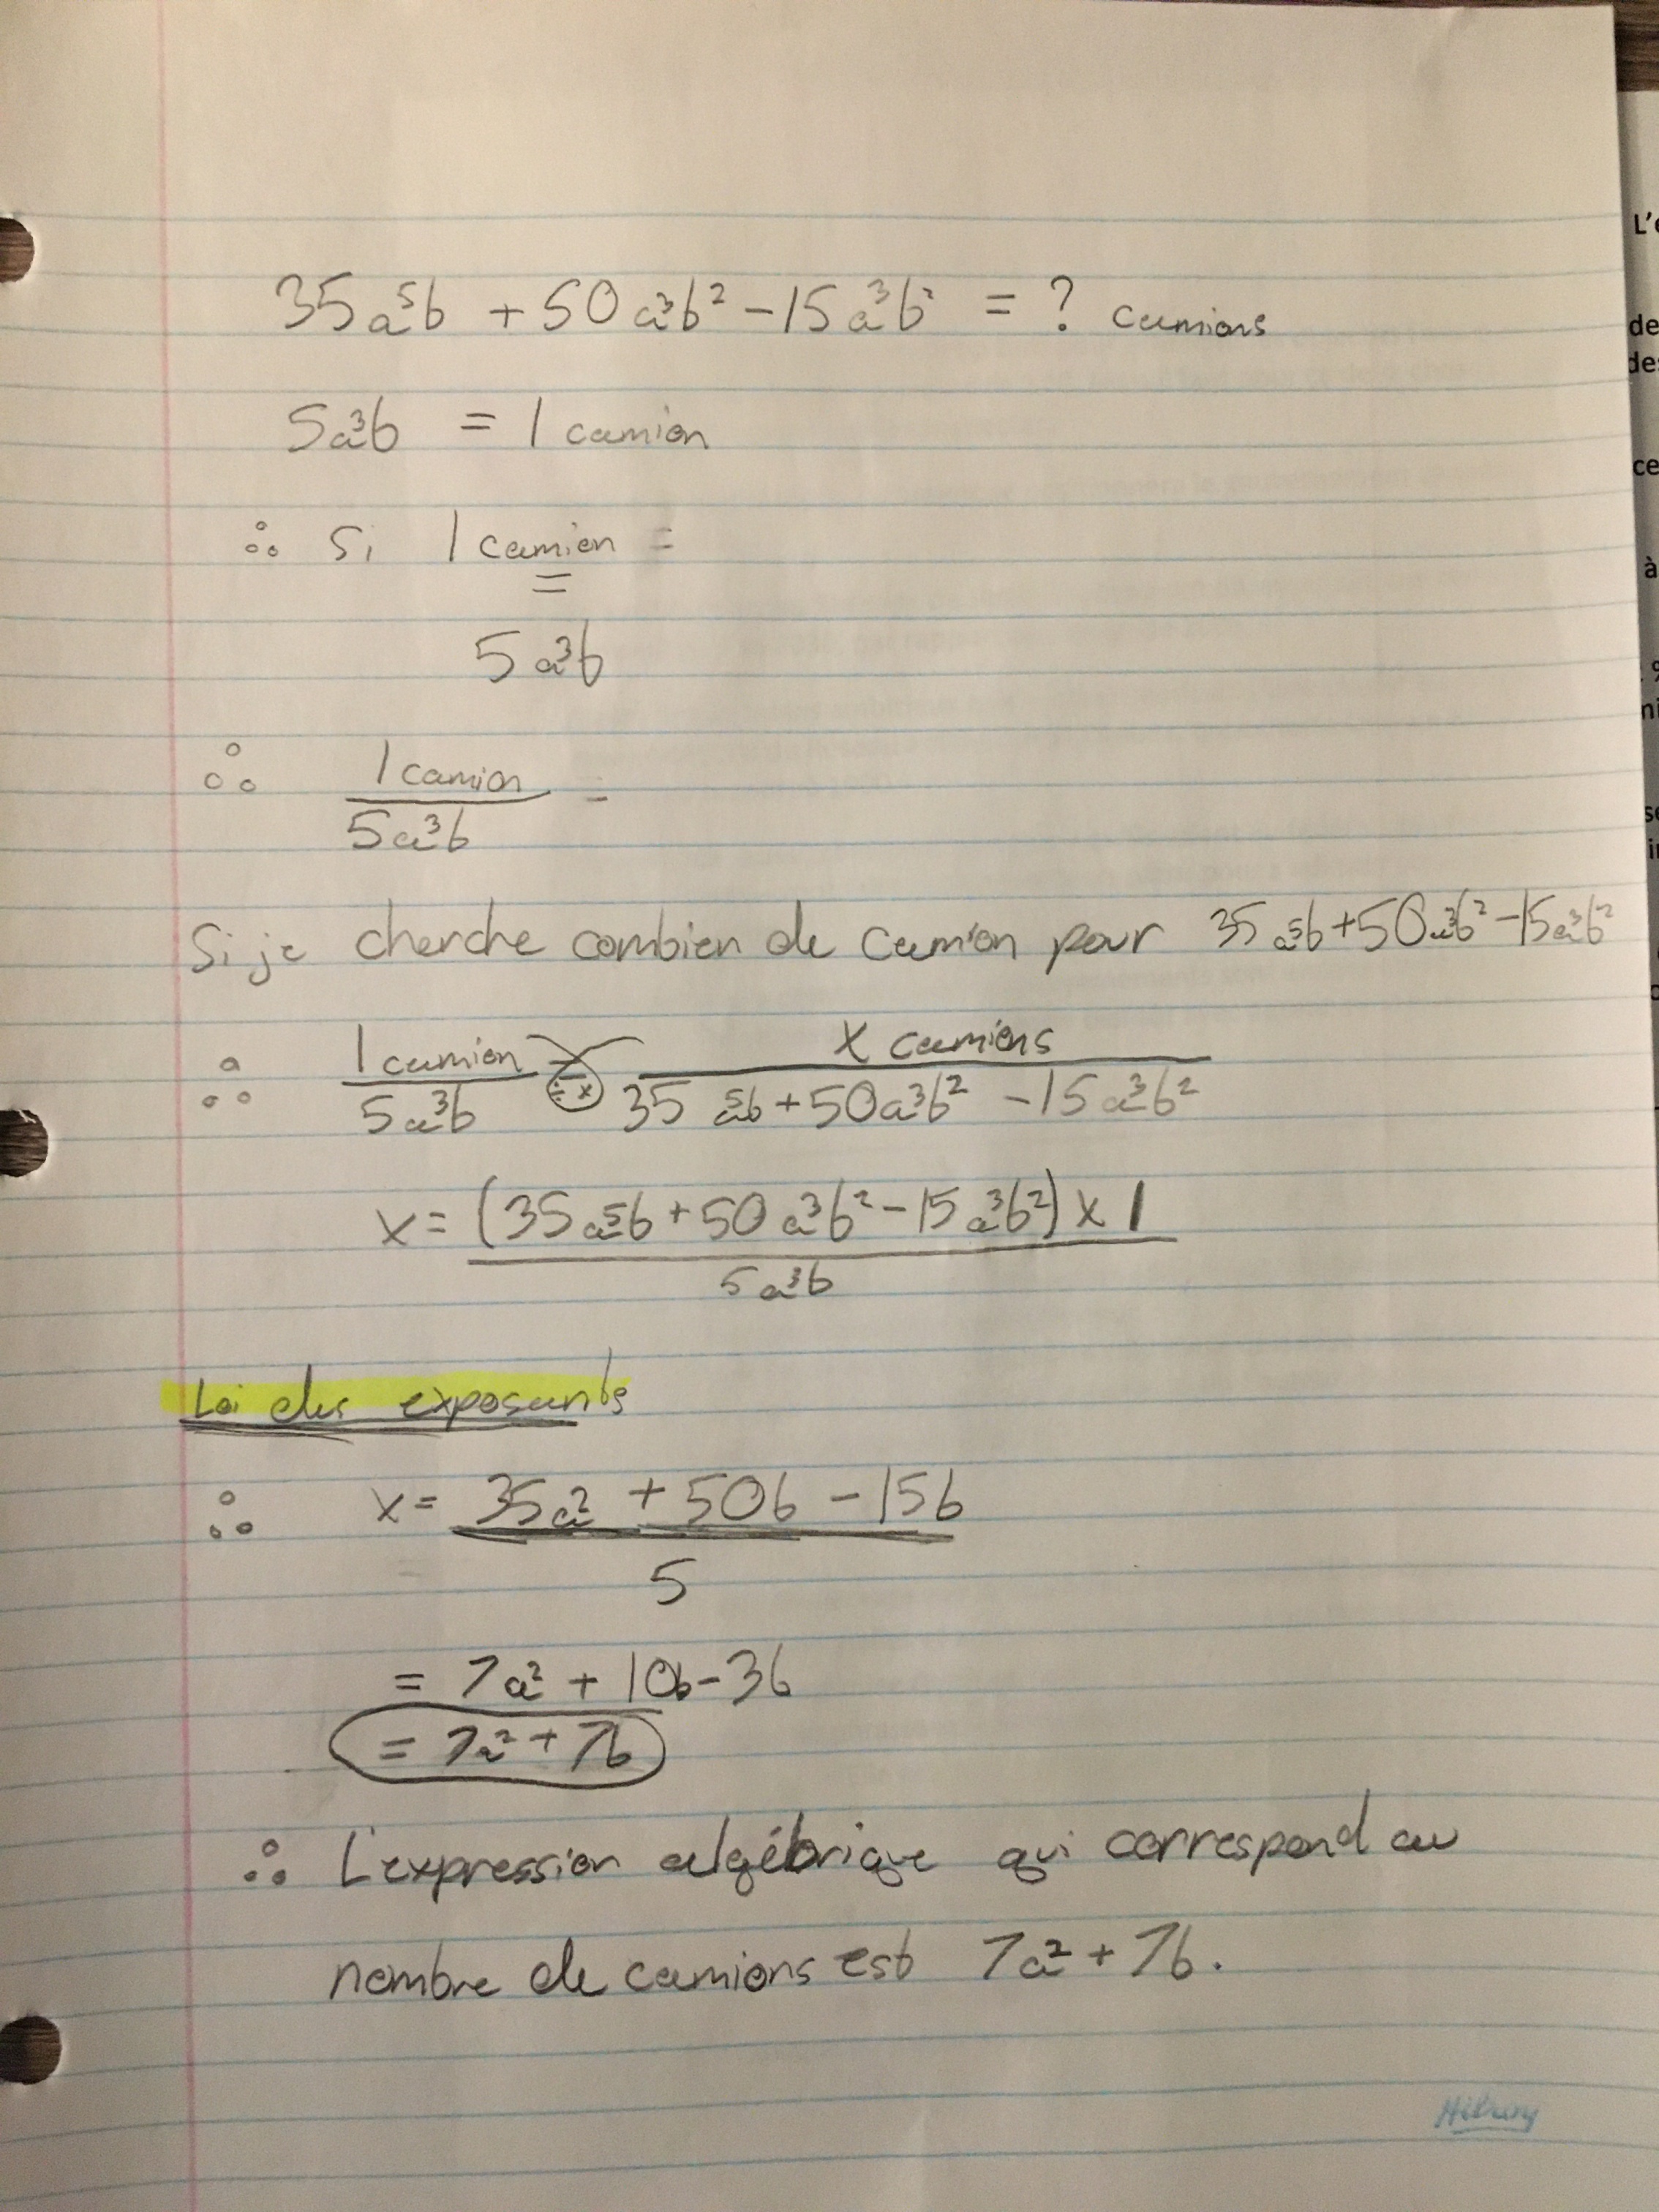 35a⁵b + 50a³b² - 15a³b² = ? camions
5a³b = 1 camion
∴ Si 1 camion =
=
5a³b
∴ 1 camion / 5a³b =
Si je cherche combien de camion pour 35a⁵b + 50a³b² - 15a³b²
∴ 1 camion / 5a³b = x camions / 35a⁵b + 50a³b² - 15a³b²
÷ x
x = (35a⁵b + 50a³b² - 15a³b²) x 1 / 5a³b
Loi des exposants
∴ x = 35a² + 50b - 15b / 5
= 7a² + 10b - 3b
= 7a² + 7b
∴ L'expression algébrique qui correspond au
nombre de camions est 7a² + 7b.
Hilroy
L'
de
des
ce
à